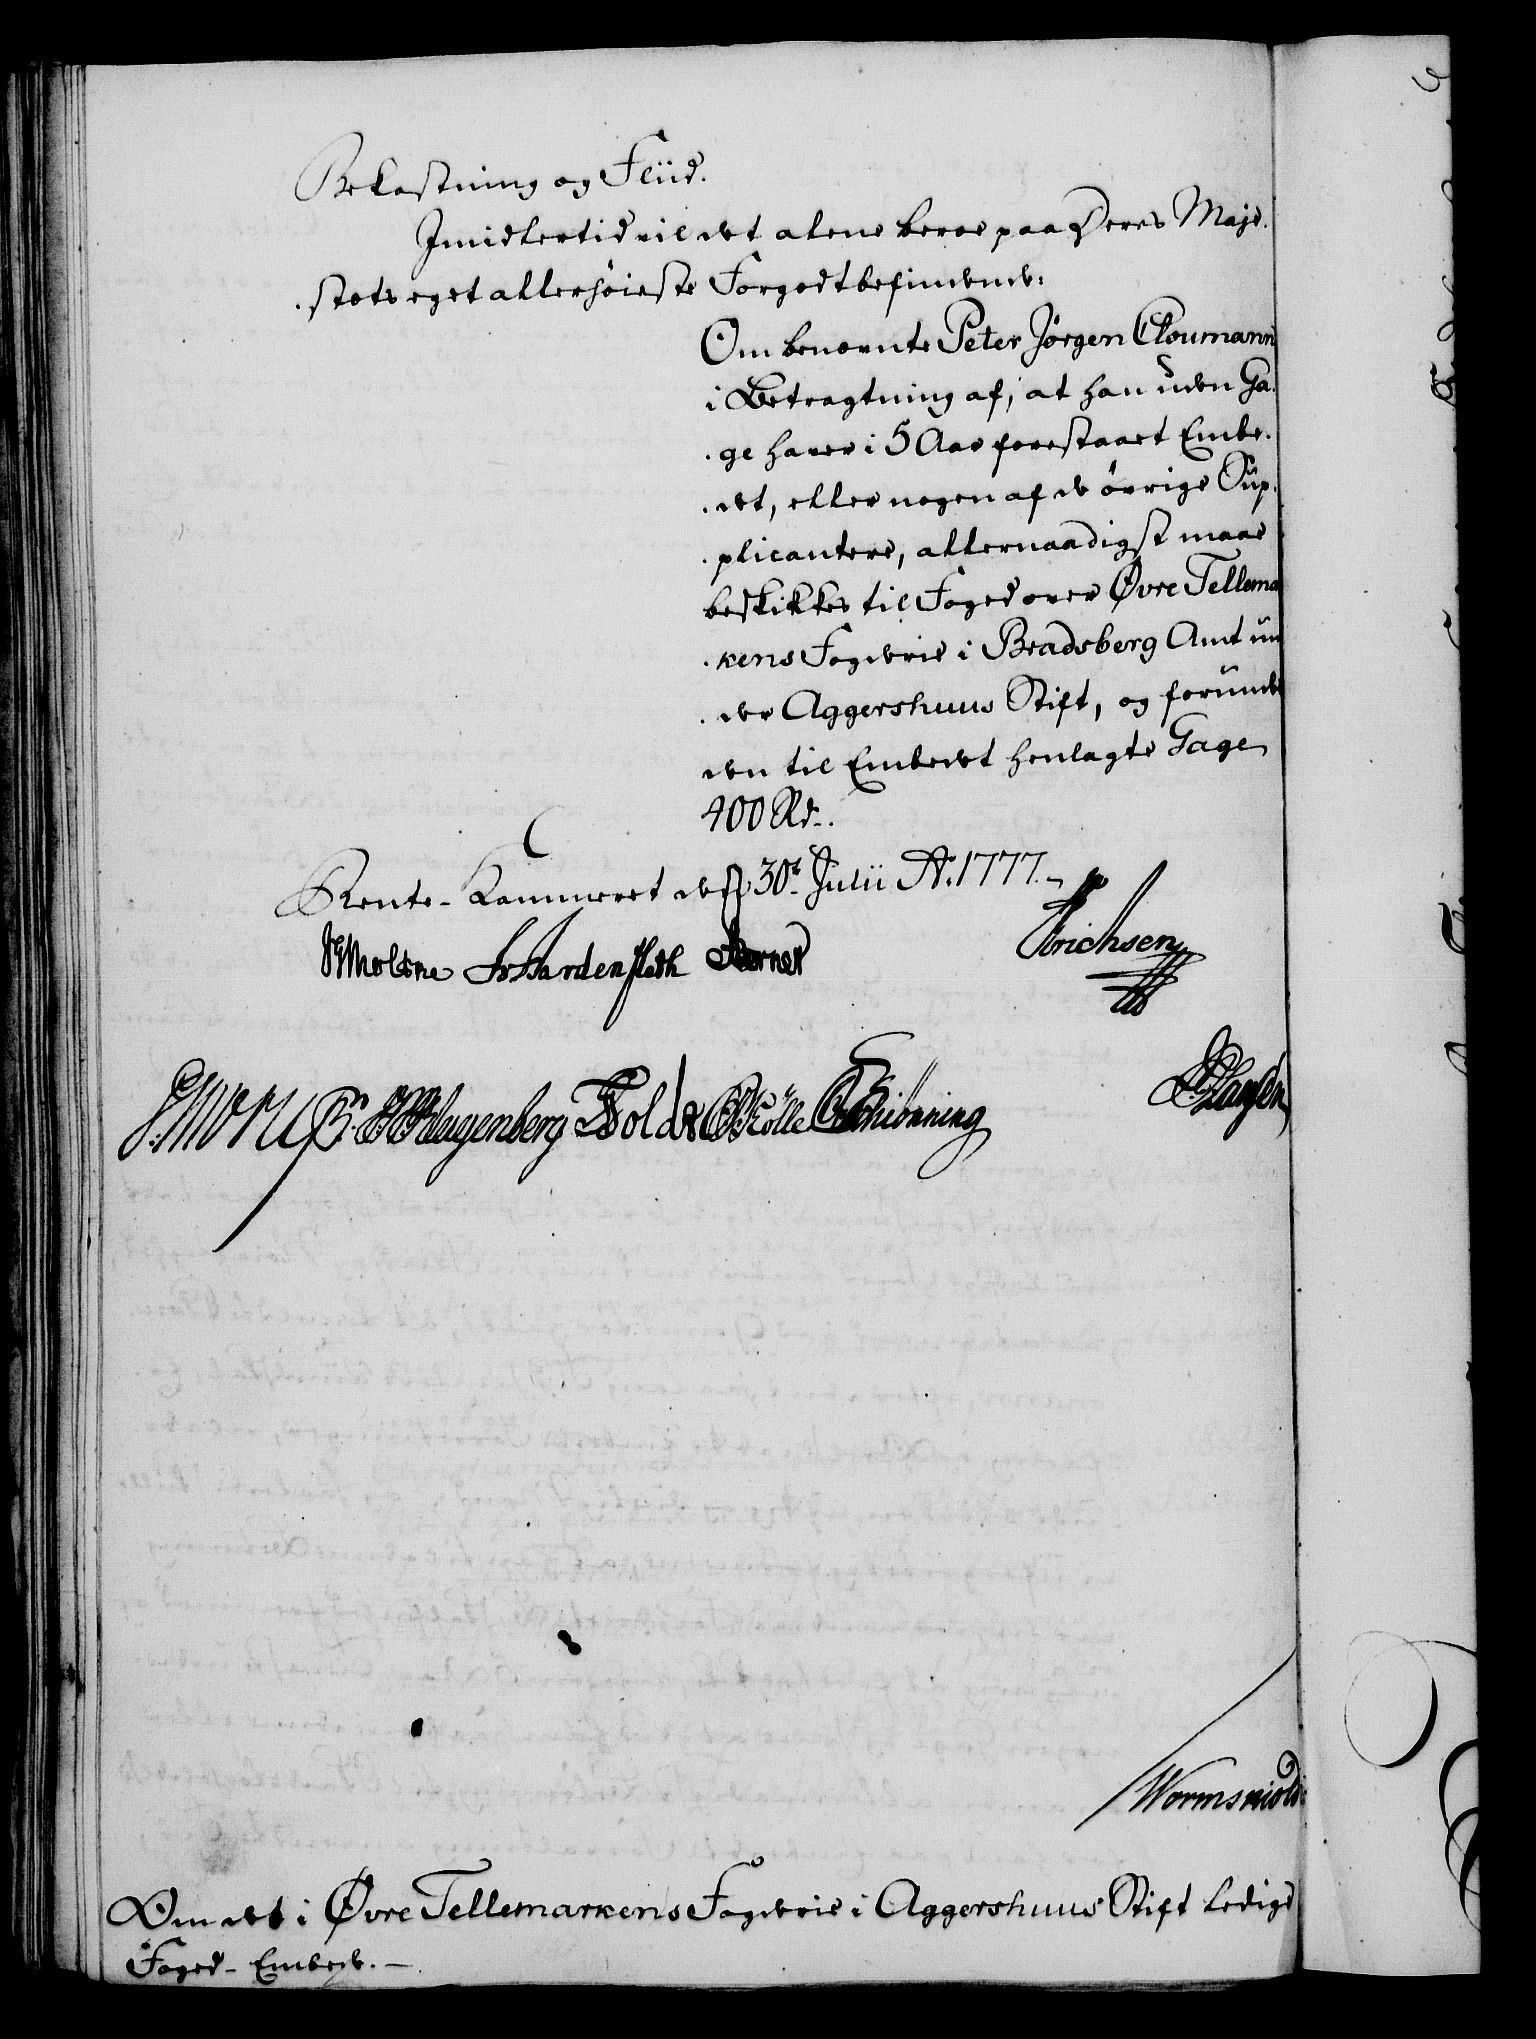 Bekostning og Fliid.
Imidlertid vil det alene beroe paa Deres Maje-
stæts eget allerhöieste Forgodtbefindende:
Om benævnte Peter Jörgen Cloumann
i Betragtning af, at han uden Ga-
ge haver i 5 Aar forestaaet Embe-
det, eller nogen af de övrige Sup-
plicantere, allernaadigst maae
beskikkes til Foged over Øvre Tellema
kens Fogderie i Bradsberg Amt un
der Aggershuus Stift, og forunde
den til Embedet henlagte Gage
400 Rd.
Rente-Kammeret den 30t Julii Ao. 1777.
Moltke Hardenfleth Berner Erichsen
Klagenberg Told Kölle Schiönning
Wormskiold
Om det i Øvre Tellemarkens Fogderie i Aggershuus Stift ledige
Foged-Embede.